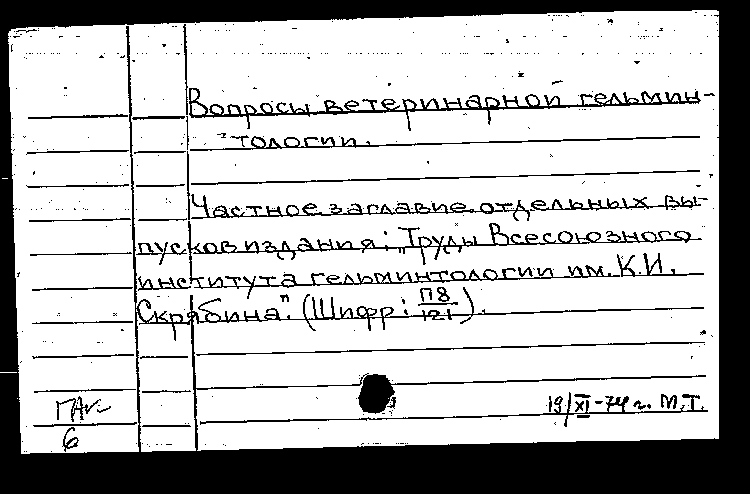 Вопросы ветеринарной гельмин-
тологии.
Частное заглавие отдельных вы-
пусков издания: „Труды Всесоюзного
института гельминтологии им. К.И.
Скрябина". (Шифр: П8/121).
19/XI-74 г. М.Т.
6